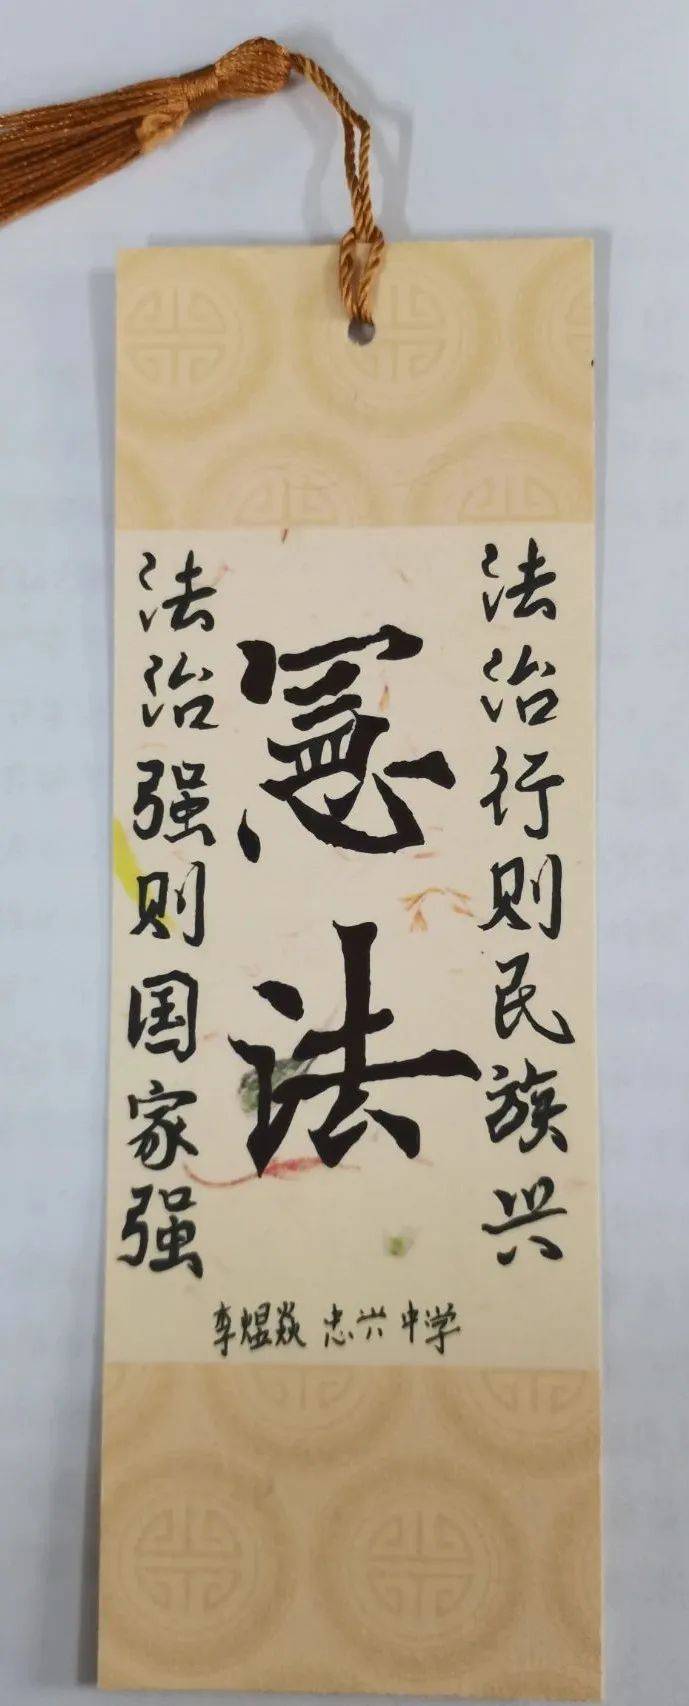 法治行则民族兴
憲法
法治强则国家强
李煜焱 忠兴中学